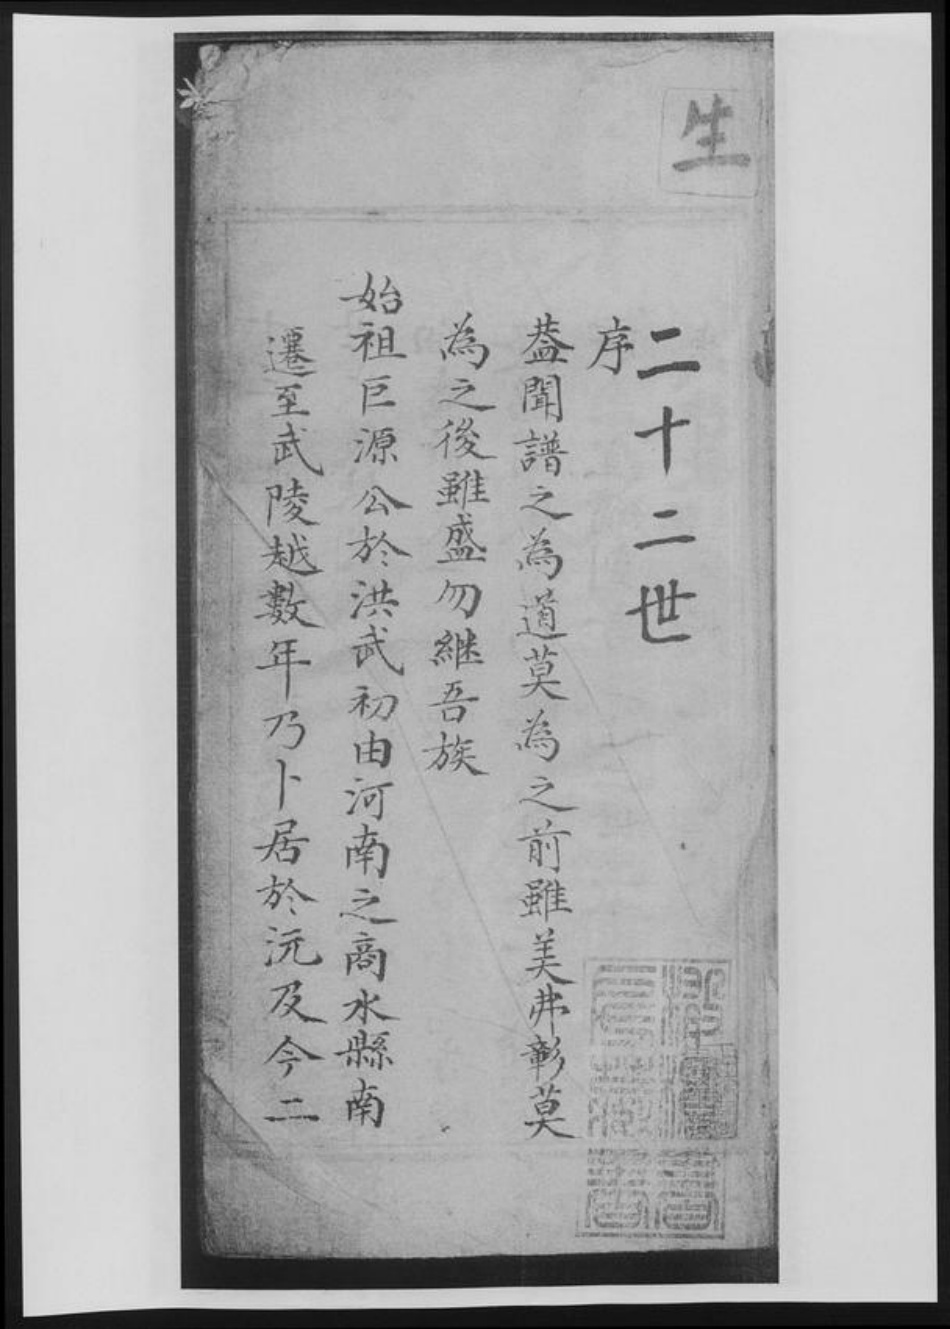 生
二十二世
序
葢聞譜之為道莫為之前雖美弗彰莫
為之後雖盛勿継吾族
始祖巨源公於洪武初由河南之商水縣南
遷至武陵越數年乃卜居於沅及今二